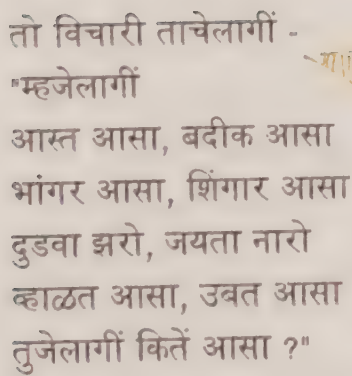 तो विचारी ताचेलागीं -
"म्हजेलागीं
आस्त आसा, बदीक आसा
भांगर आसा, शिंगार आसा
दुडवा झरो, जयता नारो
व्हाळत आसा, उबत आसा
तुजेलागीं कितें आसा ?"